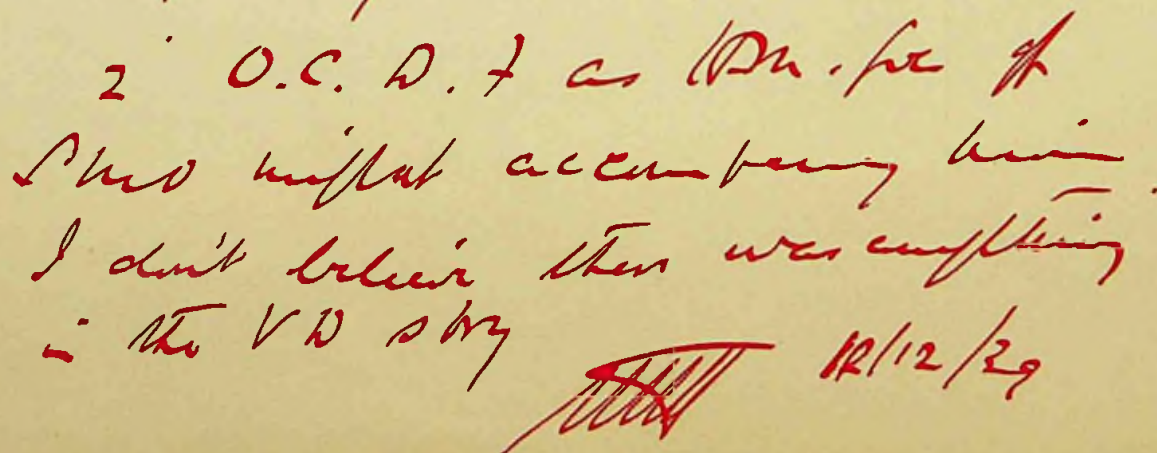 2 O.C. D.F as
S.M.O might accompany him
I don't believe there was anything
in the VD story
12/12/29